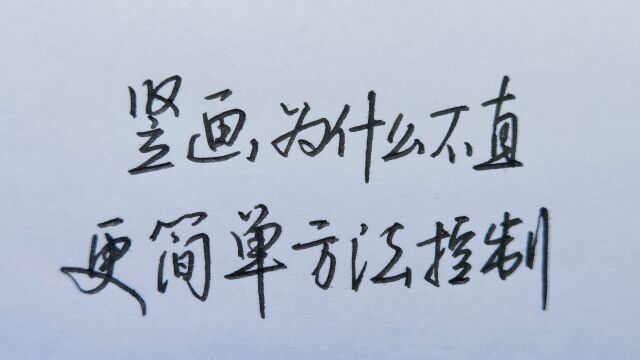 竖画,为什么不直
更简单方法控制